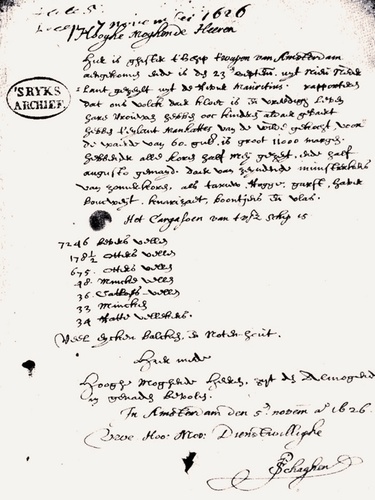 7 november 1626
Hooghe Moghende Heeren
Hier is ghister t'schip t'wapen van Amsterdam
aengekomen ende is den 23en septem. uyt Nieu Nederlant
gezeylt uyt de rivier Mauritius. rapporteren
dat ons volck daer kloec is en vreedigh leven
hare vrouwen hebben oock kinders aldaer gebaert
hebben t'eylant Manhattes van de wilde gekocht voor
de waerde van 60 guld. is groot 11000 morgen
hebbende alle koren half mey gezeyt, ende half
augusto gemayd. daer van zeynden munsterkens
van zomerkoren, als tarwe, rogge, garst, haver
boucweyt, knarizaet, boontjens en vlas.
Het Cargasoen van tvsz schip is
'SRYKS
ARCHIEF
7246 bevers vellen
178½ otters vellen
675 otters vellen
48 mincke vellen
36 catloes vellen
33 mincken
34 ratte vellekens.
Veel eycken balcken, en Noten hout.
Hier mede
Hooghe Moghende Heeren, zyt den Almogende
in genade bevolen.
In Amsterdam den 5en novem ao 1626.
Uwe Hoo: Moo: Dienstwillighe
P Schaghen